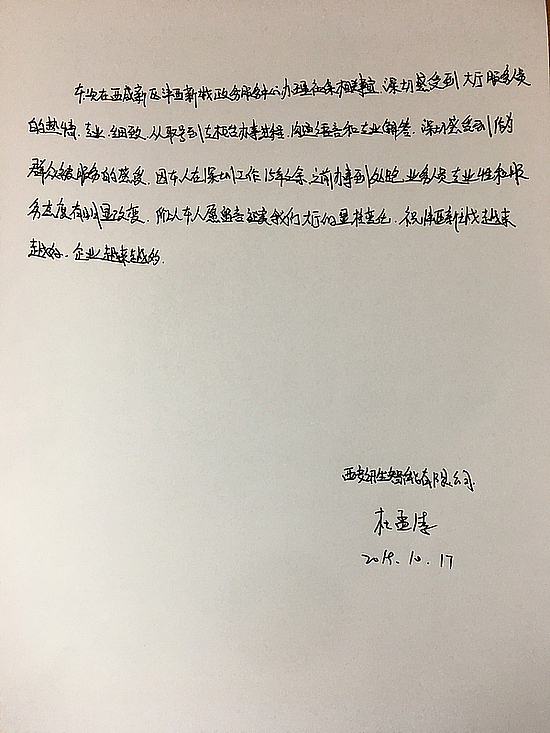 本次在西咸新区沣西新城政务服务中心办理社保相关事宜,深切感受到大厅服务人员
的热情、专业、细致。从取号到主柜台办事流程,沟通语言和专业解答,深切感受到作为
群众被服务的温度。因本人在深圳工作15年之余,之前办事到处跑,业务人员专业性和服
务态度有明显改变。所以本人愿留言证实我们大厅的里程变化,祝沣西新城越来
越好。企业越来越好。
西安 智能有限公司
杜孟涛
2019.10.17